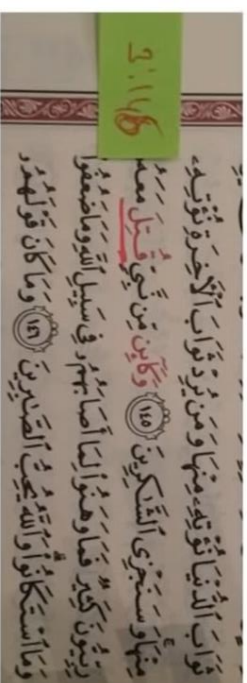 3:146
ثَوَابَ ٱلدُّنْيَا نُؤْتِهِۦ مِنْهَا وَمَن يُرِدْ ثَوَابَ ٱلْأَخِرَةِ نُؤْتِهِۦ
مِنْهَا وَسَنَجْزِي ٱلشَّٰكِرِينَ ١٤٥ وَكَآئِن مِّن نَّبِيٍّ قُتِلَ مَعَهُۥ
رِبِّيُّونَ كَثِيرٌ فَمَا وَهَنُوا۟ لِمَا أَصَابَهُمُۥ فِي سَبِيلِ ٱللَّهِ وَمَا ضَعُفُوا۟
وَمَا ٱسْتَكَانُوا۟ وَٱللَّهُ يُحِبُّ ٱلصَّٰبِرِينَ ١٤٦ وَمَا كَانَ قَوْلَهُمُۥ